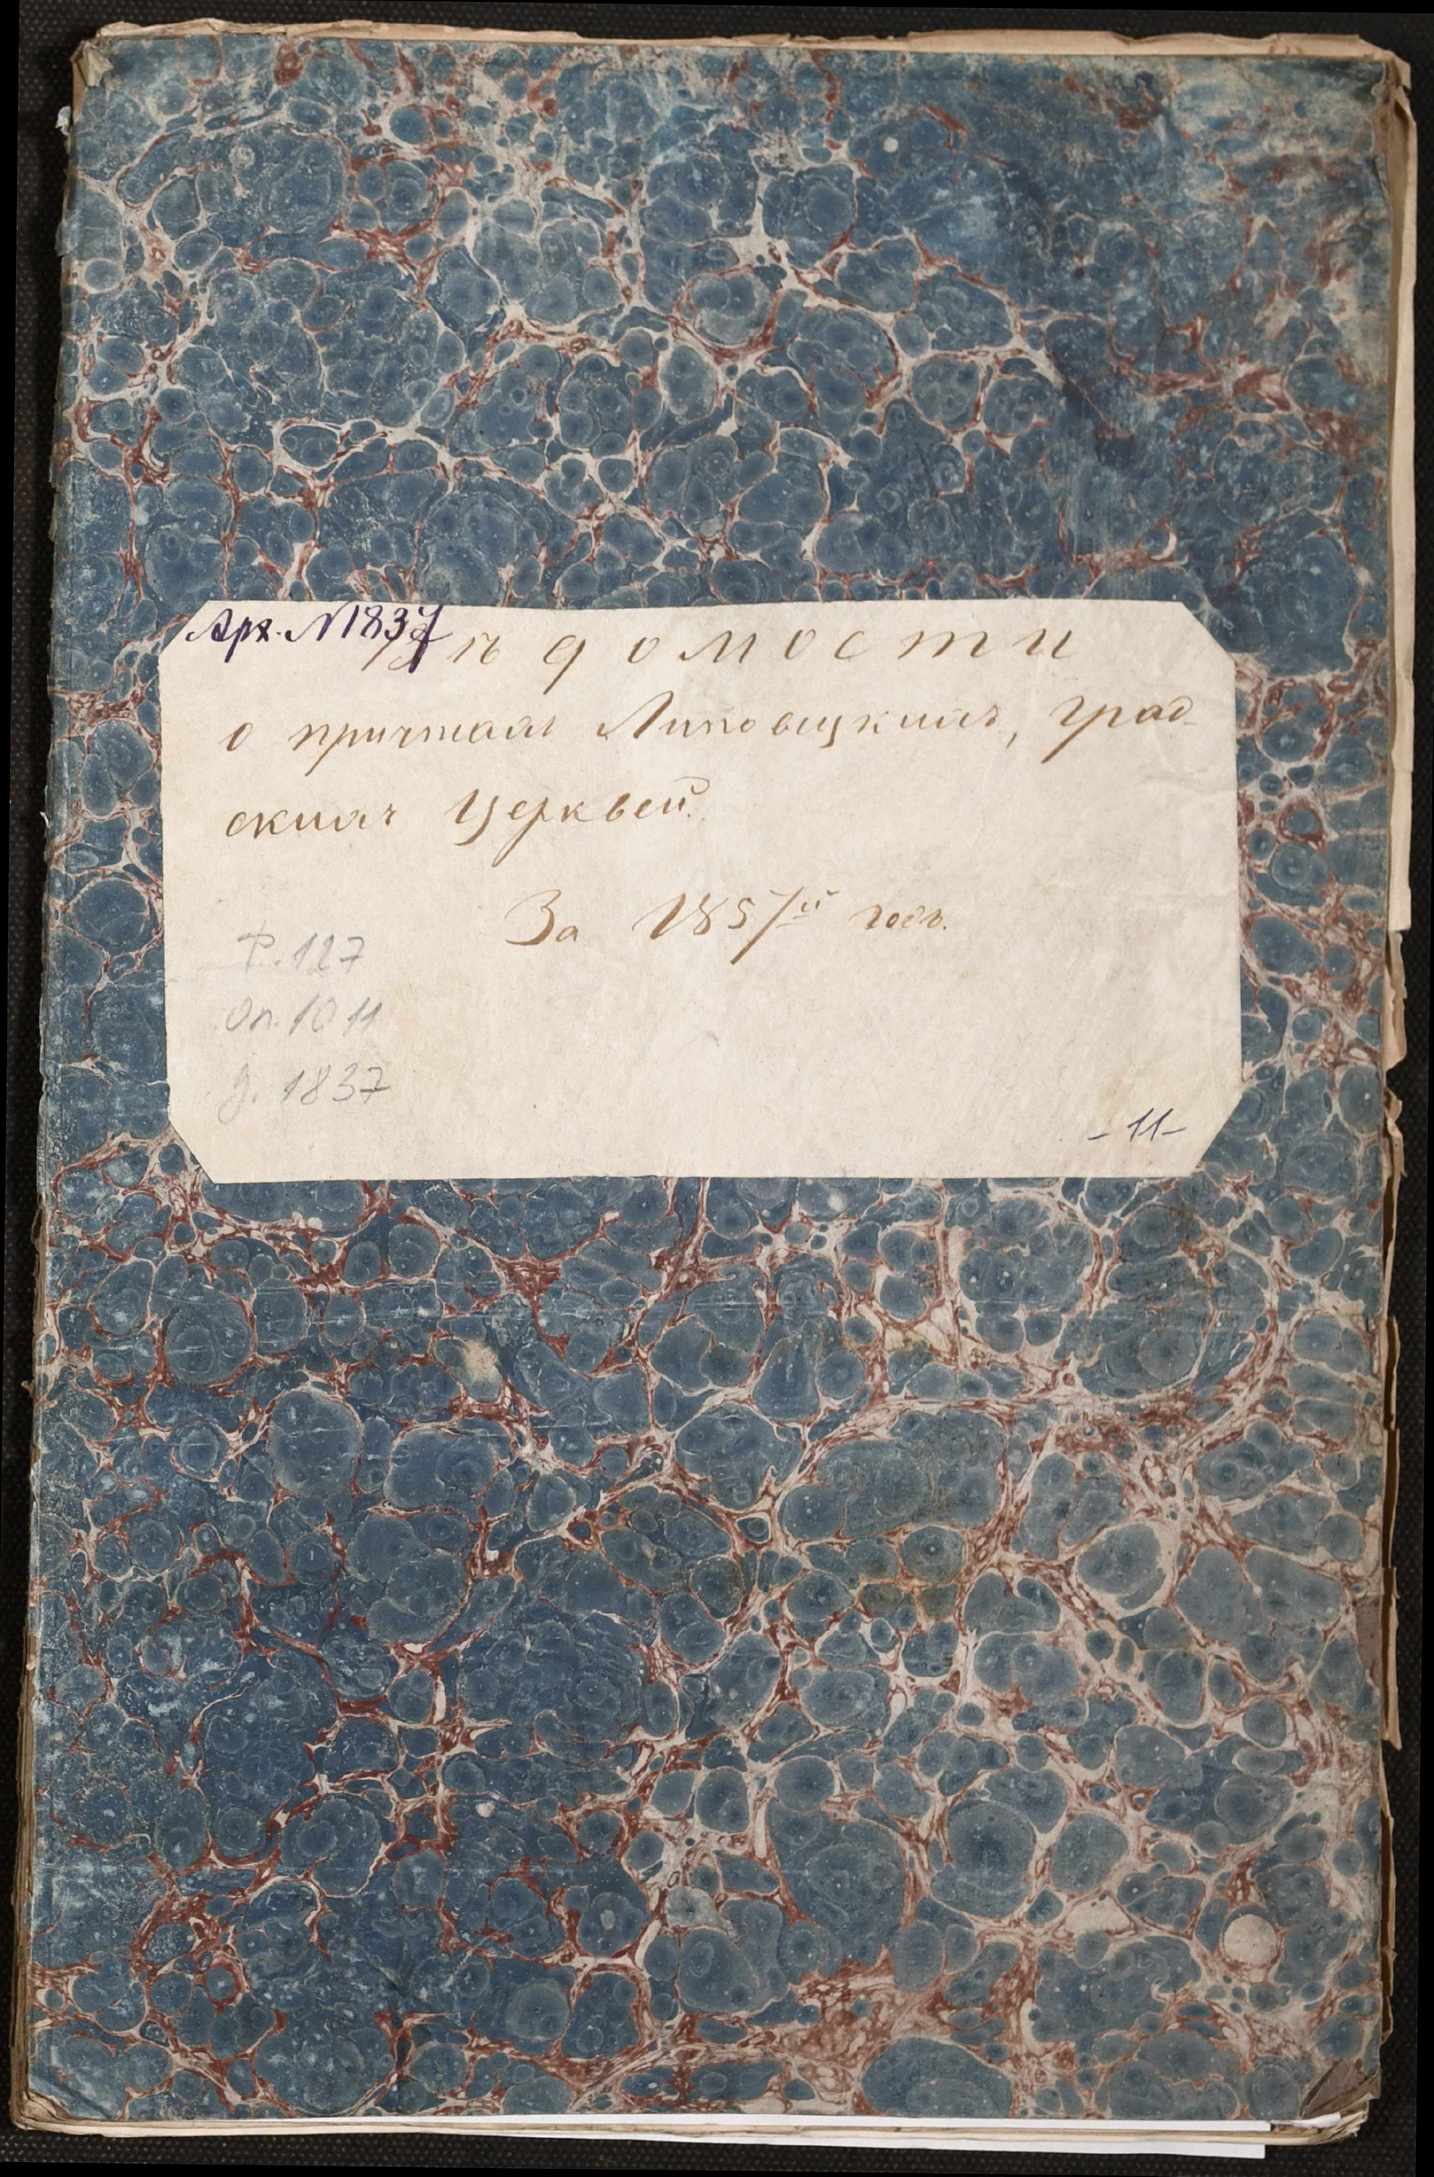 Арх. №1837
Вѣдомости
о причтахъ Липовецкихъ, град-
скихъ Церквей.
За 1857й годъ.
Ф. 127
Оп. 1011
д. 1837
-11-